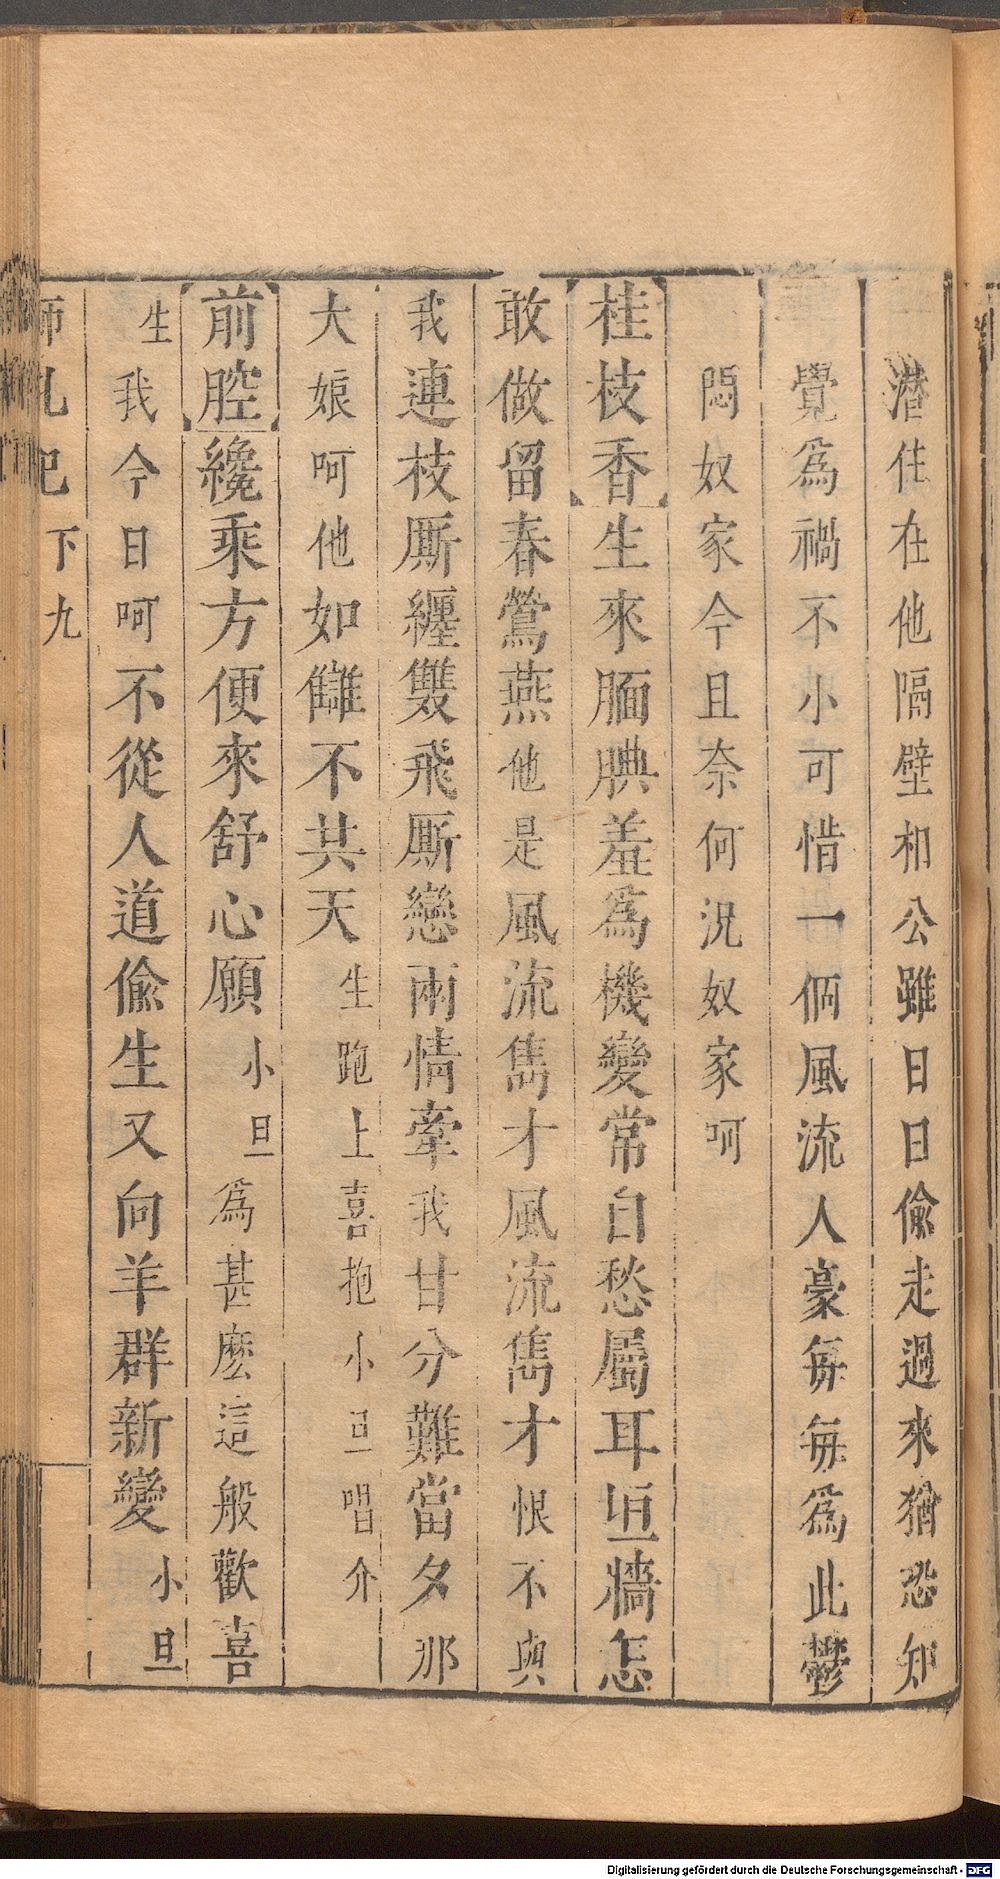 潛住在他隔壁相公雖日日偷走過來猶恐知
覺爲禍不小可惜一個風流人豪每每爲此鬱
悶奴家今且奈何況奴家呵
桂枝香生來腼腆羞爲機變常自愁屬耳垣牆怎
敢做留春鶯燕他是風流雋才風流雋才恨不與
我連枝厮纏雙飛厮戀兩情牽我甘分難當夕那
大娘呵他如讎不共天生跑上喜抱小旦唱介
前腔纔乘方便來舒心願小旦爲甚麽這般歡喜
生我今日呵不從人道偷生又向羊群新變小旦
下九
Digitalisierung gefördert durch die Deutsche Forschungsgemeinschaft - DFG